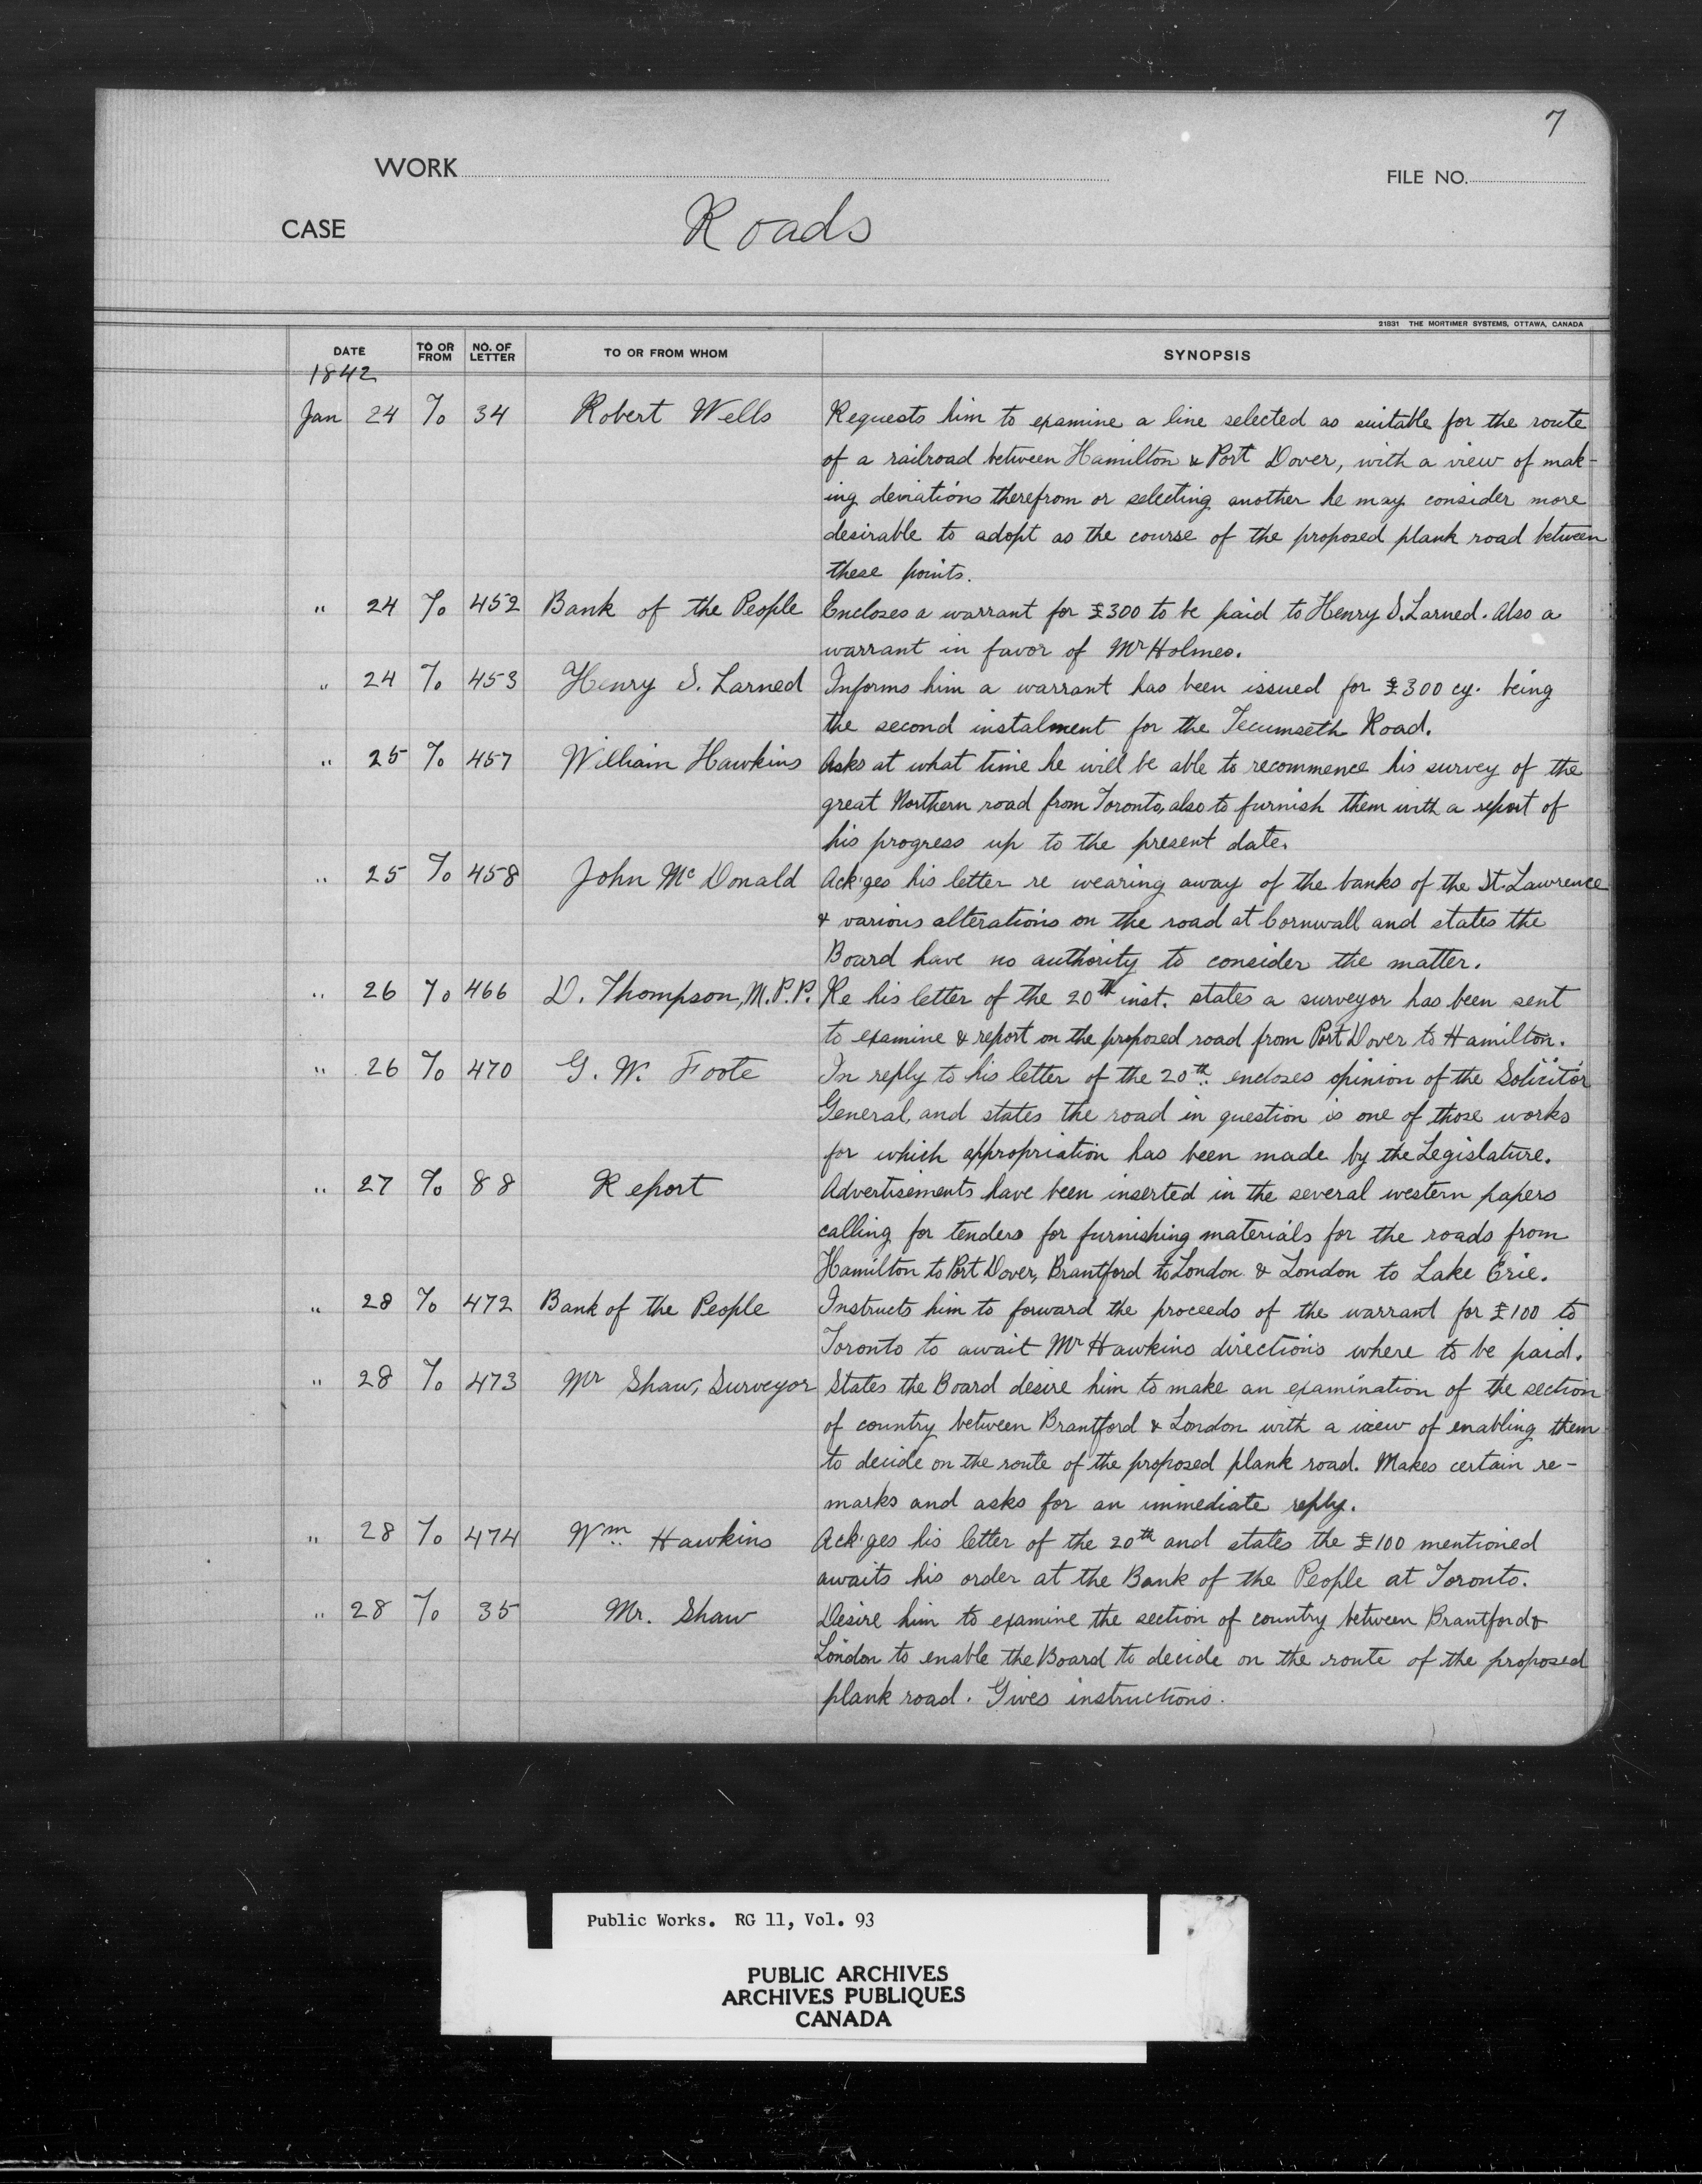 7
WORK
FILE NO.
CASE
Roads
21831 THE MORTIMER SYSTEMS, OTTAWA, CANADA
DATE TO OR FROM NO. OF LETTER TO OR FROM WHOM SYNOPSIS
1842
Jan 24 T/o 34 Robert Wells Requests him to examine a line selected as suitable for the route
of a railroad between Hamilton & Port Dover, with a view of mak-
ing deviations therefrom or selecting another he may consider more
desirable to adopt as the course of the proposed plank road between
these points.
" 24 T/o 452 Bank of the People Encloses a warrant for £300 to be paid to Henry S. Larned. Also a
warrant in favor of Mr Holmes.
" 24 T/o 453 Henry S. Larned Informs him a warrant has been issued for £300 cy. being
the second instalment for the Tecumseth Road.
" 25 T/o 457 William Hawkins Asks at what time he will be able to recommence his survey of the
great Northern road from Toronto, also to furnish them with a report of
his progress up to the present date.
" 25 T/o 458 John Mc Donald Ack'ges his letter re wearing away of the banks of the St. Lawrence
& various alterations on the road at Cornwall and states the
Board have no authority to consider the matter.
" 26 T/o 466 D. Thompson, M.P.P. Re his letter of the 20th inst. states a surveyor has been sent
to examine & report on the proposed road from Port Dover to Hamilton.
" 26 T/o 470 G. W. Foote In reply to his letter of the 20th encloses opinion of the Solicitor
General, and states the road in question is one of those works
for which appropriation has been made by the Legislature.
" 27 T/o 88 Report Advertisements have been inserted in the several western papers
calling for tenders for furnishing materials for the roads from
Hamilton to Port Dover, Brantford to London & London to Lake Erie.
" 28 T/o 472 Bank of the People Instructs him to forward the proceeds of the warrant for £100 to
Toronto to await Mr Hawkins directions where to be paid.
" 28 T/o 473 Mr Shaw, Surveyor States the Board desire him to make an examination of the section
of country between Brantford & London with a view of enabling them
to decide on the route of the proposed plank road. Makes certain re-
marks and asks for an immediate reply.
" 28 T/o 474 Wm. Hawkins Ack'ges his letter of the 20th and states the £100 mentioned
awaits his order at the Bank of the People at Toronto.
" 28 T/o 35 Mr. Shaw Desire him to examine the section of country between Brantford &
London to enable the Board to decide on the route of the proposed
plank road. Gives instructions.
Public Works. RG 11, Vol. 93
PUBLIC ARCHIVES
ARCHIVES PUBLIQUES
CANADA